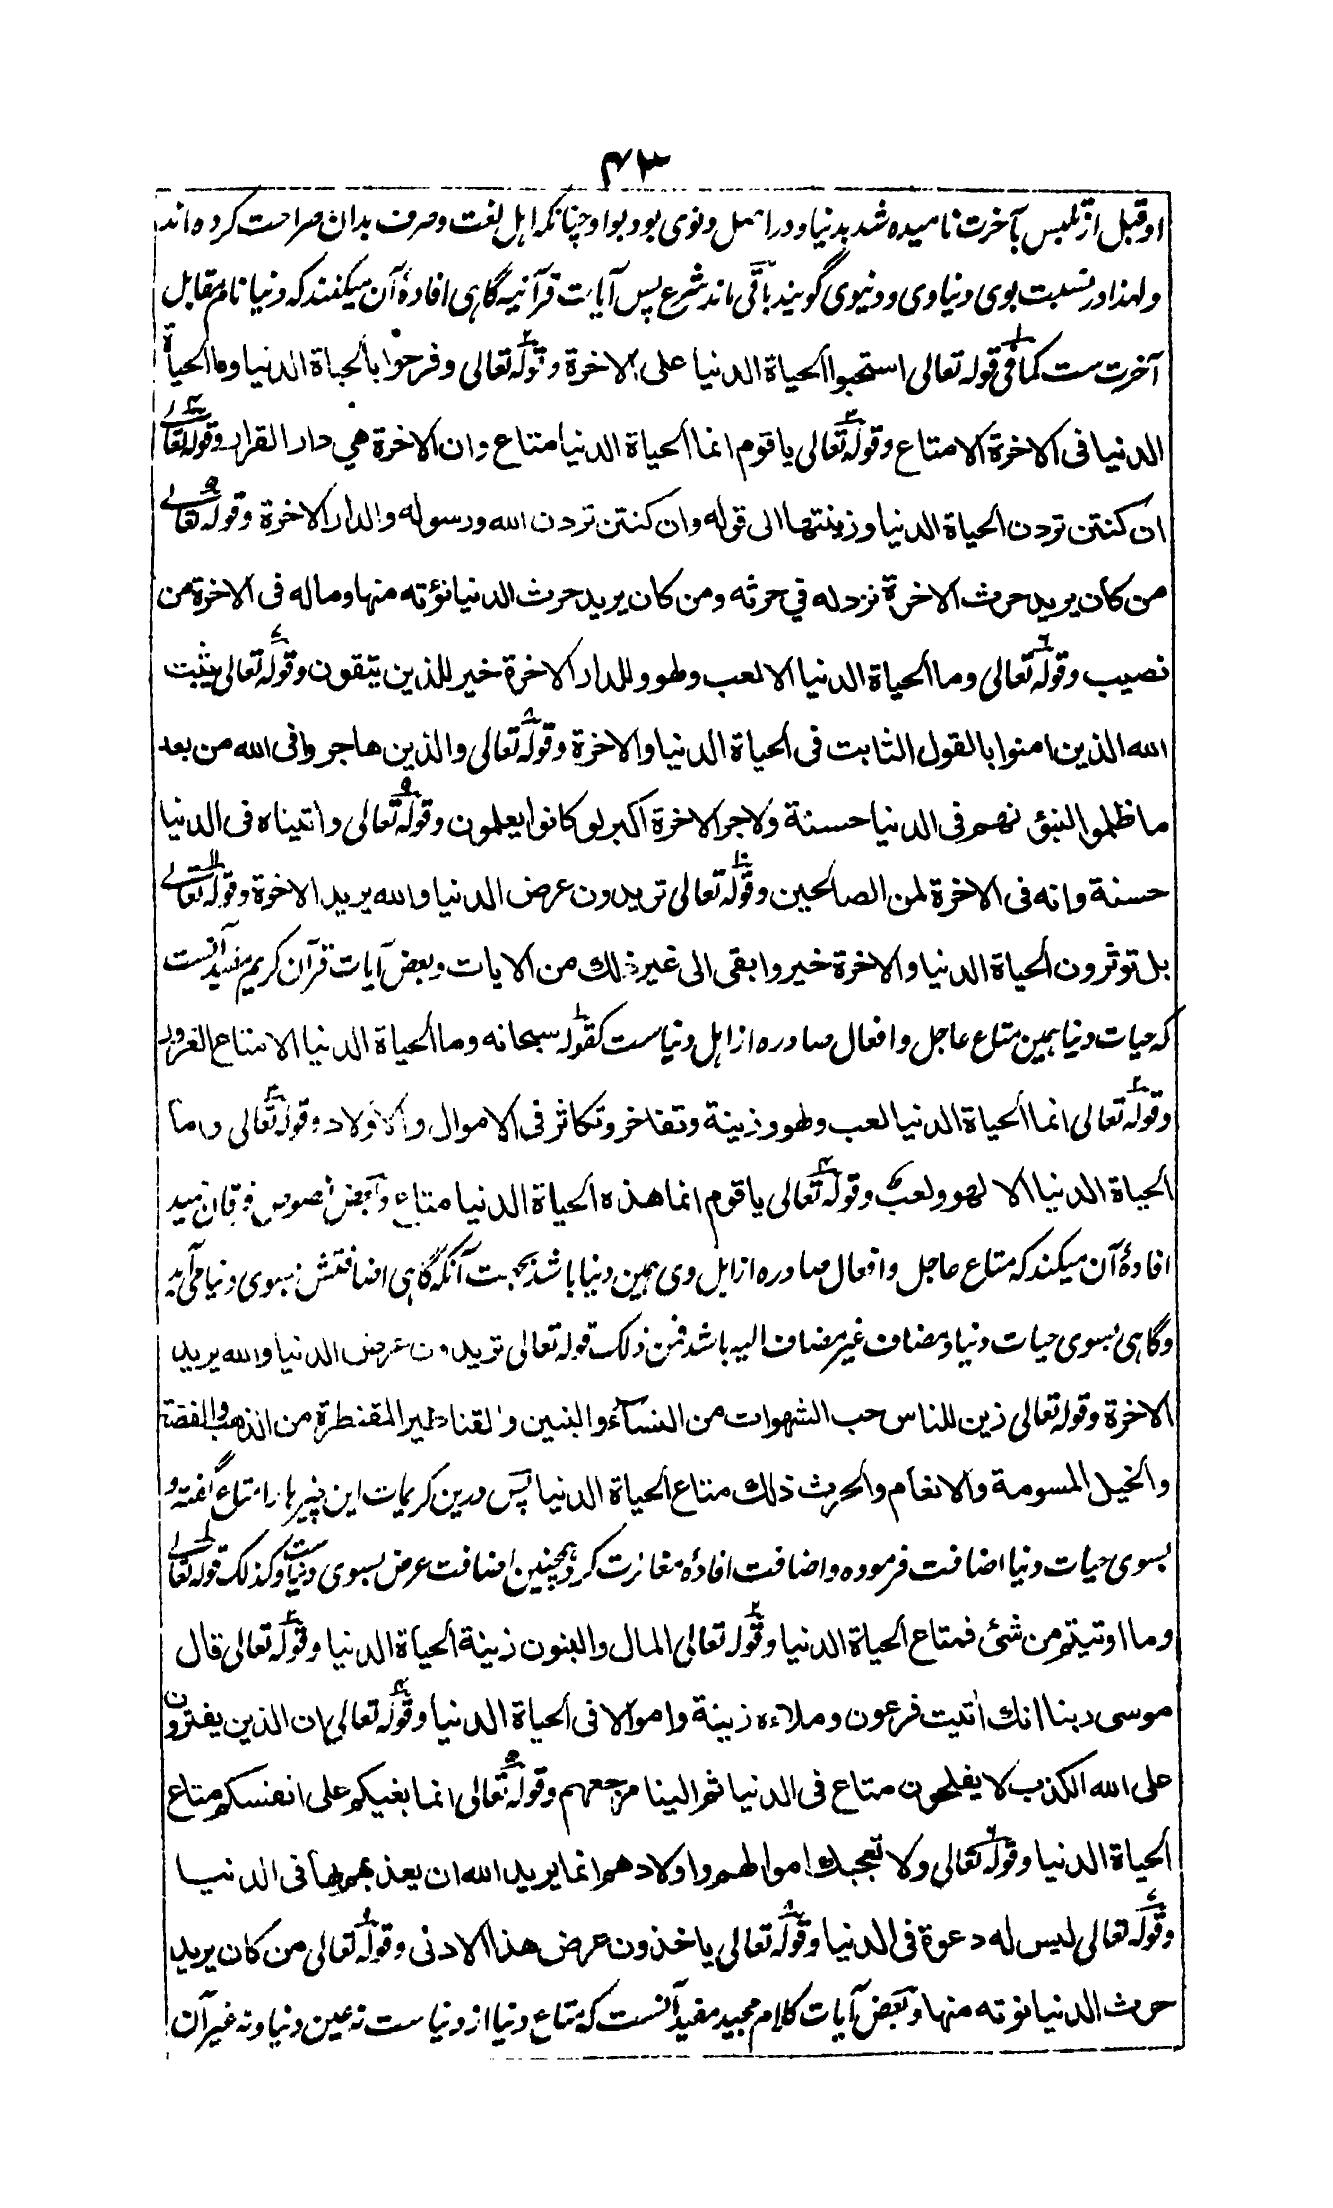 ۴۳
او قبل از تلبس بآخرت نامیده شد بدنیا و در اصل دنوی بود بواو چنانکه اهل لغت و صرف بدان صراحت کرده اند
ولهذا در نسبت بوی دنیاوی و دنیوی گویند باقی ماند شرع پس آیات قرآنیه گاهی افادهٔ آن میکنند که دنیا نام مقابل
آخرت ست کما فی قوله تعالی استحبوا الحیاة الدنیا علی الاخرة وقوله تعالی وفرحوا بالحیاة الدنیا وما الحیاة
الدنیا فی الاخرة الا متاع وقوله تعالی یا قوم انما الحیاة الدنیا متاع وان الاخرة هی دار القرار وقوله تعالے
ان کنتن تردن الحیاة الدنیا وزینتها الی قوله وان کنتن تردن الله ورسوله والدار الاخرة وقوله تعالے
من کان یرید حرث الاخرة نزد له فی حرثه ومن کان یرید حرث الدنیا نؤته منها وماله فی الاخرة من
نصیب وقوله تعالی وما الحیاة الدنیا الا لعب ولهو وللدار الاخرة خیر للذین یتقون وقوله تعالی یثبت
الله الذین امنوا بالقول الثابت فی الحیاة الدنیا والاخرة وقوله تعالی والذین هاجروا فی الله من بعد
ما ظلموا لنبوئنهم فی الدنیا حسنة ولاجر الاخرة اکبر لو کانوا یعلمون وقوله تعالی واتیناه فی الدنیا
حسنة وانه فی الاخرة لمن الصالحین وقوله تعالی تریدون عرض الدنیا والله یرید الاخرة وقوله تعالے
بل توثرون الحیاة الدنیا والاخرة خیر وابقی الی غیر ذلك من الایات وبعض آیات قرآن کریم مفید آنست
که حیات دنیا همین متاع عاجل و افعال صادره از اهل دنیاست کقوله سبحانه وما الحیاة الدنیا الا متاع الغرور
وقوله تعالی انما الحیاة الدنیا لعب ولهو وزینة وتفاخر وتکاثر فی الاموال والاولاد وقوله تعالی وما
الحیاة الدنیا الا لهو ولعب وقوله تعالی یا قوم انما هذه الحیاة الدنیا متاع وبعض نصوص فرقان حمید
افادهٔ آن میکند که متاع عاجل و افعال صادره از اهل وی همین دنیا باشد بجهت آنکه گاهی اضافتش بسوی دنیا می آید
و گاهی بسوی حیات دنیا و مضاف غیر مضاف الیه باشد فمن ذلك قوله تعالی تریدون عرض الدنیا والله یرید
الاخرة وقوله تعالی زین للناس حب الشهوات من النساء والبنین والقناطیر المقنطرة من الذهب والفضة
والخیل المسومة والانعام والحرث ذلك متاع الحیاة الدنیا پس درین کریمات این چیزها را متاع گفته و
بسوی حیات دنیا اضافت فرموده و اضافت افادهٔ مغائرت کرد همچنین اضافت عرض بسوی دنیاست وکذلك قوله تعالے
وما اوتیتم من شئ فمتاع الحیاة الدنیا وقوله تعالی المال والبنون زینة الحیاة الدنیا وقوله تعالی قال
موسی ربنا انك اتیت فرعون وملاءه زینة واموالا فی الحیاة الدنیا وقوله تعالی ان الذین یفترون
علی الله الکذب لا یفلحون متاع فی الدنیا ثم الینا مرجعهم وقوله تعالی انما بغیکم علی انفسکم متاع
الحیاة الدنیا وقوله تعالی ولا تعجبك اموالهم واولادهم انما یرید الله ان یعذبهم بها فی الدنیا
وقوله تعالی لیس له دعوة فی الدنیا وقوله تعالی یاخذون عرض هذا الادنی وقوله تعالی من کان یرید
حرث الدنیا نوته منها وبعض آیات کلام مجید مفید آنست که متاع دنیا از دنیا ست نه عین دنیا و نه غیر آن